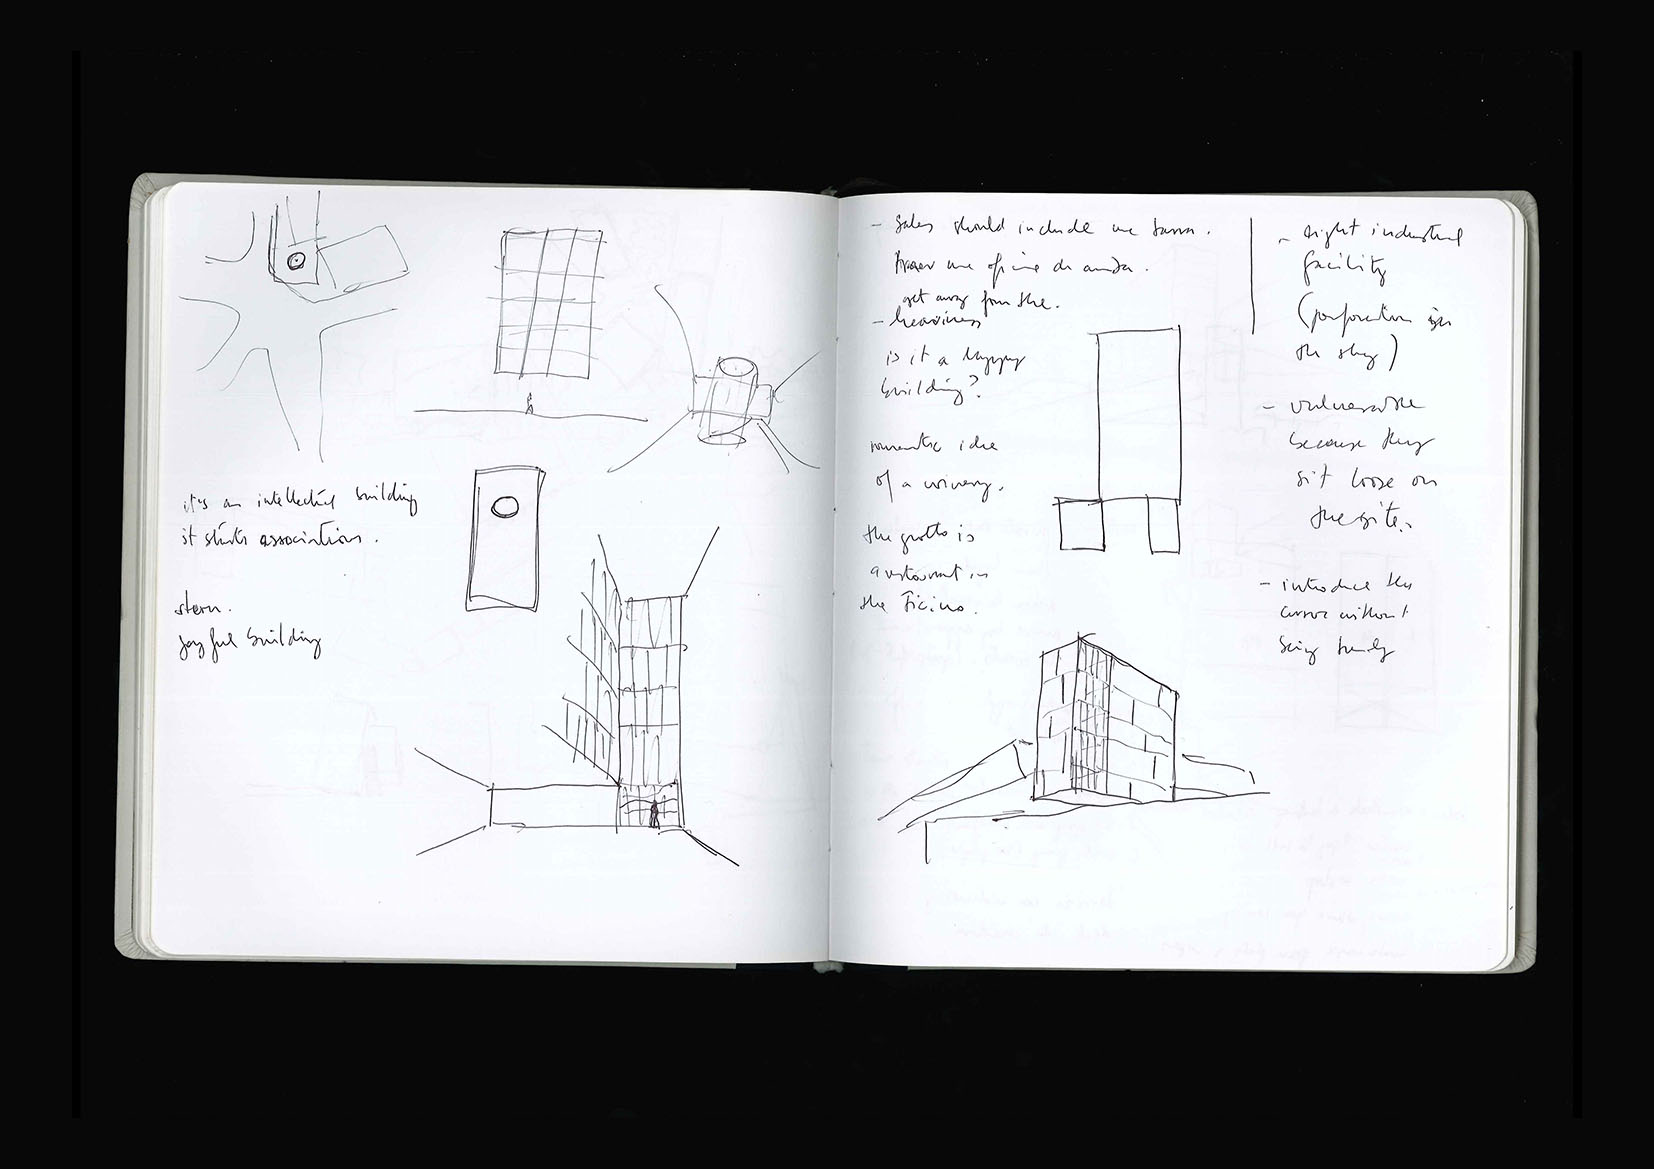 it's an intellectual building
it starts associations.
stern.
joyful building
- Sales should include
get away from the.
- heaviness
is it a happy
building?
romantic idea
of a winery.
the grotto is
a restaurant in
the Ticino.
industrial
facility
(perforation in
the sky)
- vulnerable
because they
sit loose on
the site.
- introduce the
curve without
being